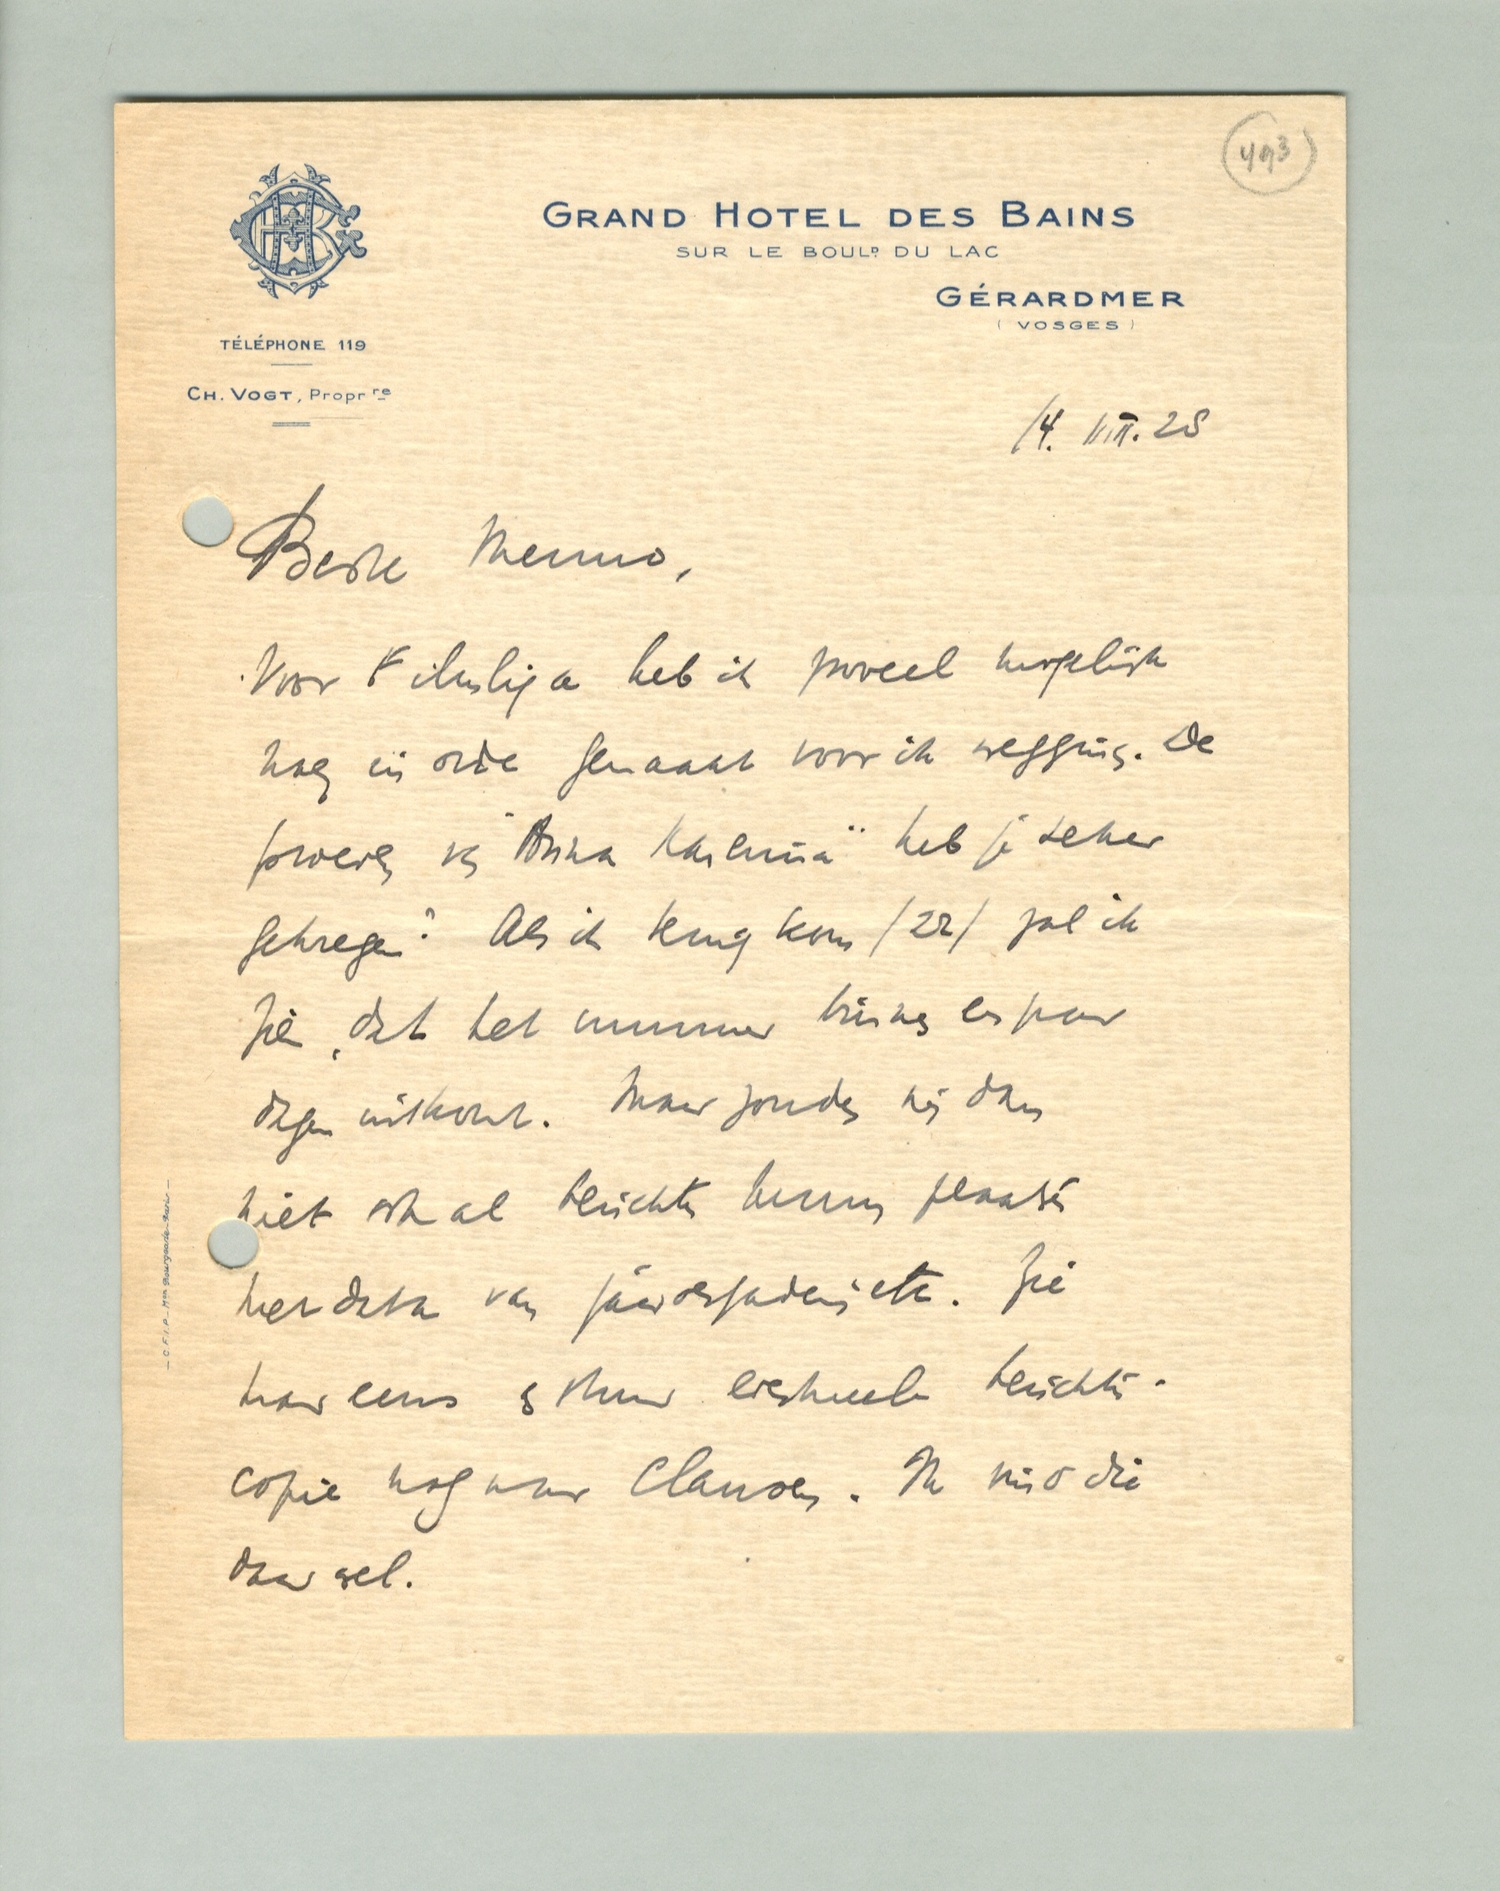 493
GRAND HOTEL DES BAINS
SUR LE BOULD DU LAC
GÉRARDMER
(VOSGES)
TÉLÉPHONE 119
CH. VOGT, Proprre
14. VIII. 28
Beste Menno,
Voor Filmliga heb ik zooveel mogelijk
nog in orde gemaakt voor ik wegging. De
proeven v. "Anna Karenina" heb je zeker
gekregen? Als ik terug kom /22/ zal ik
zien, dat het nummer binnen een paar
dagen uitkomt. Maar zouden wij dan
niet ook al berichten kunnen plaatsen
met data van etc. Zie
maar eens & stuur eventueele berichten-
copie nog naar Clausen. Ik mis die
daar wel.